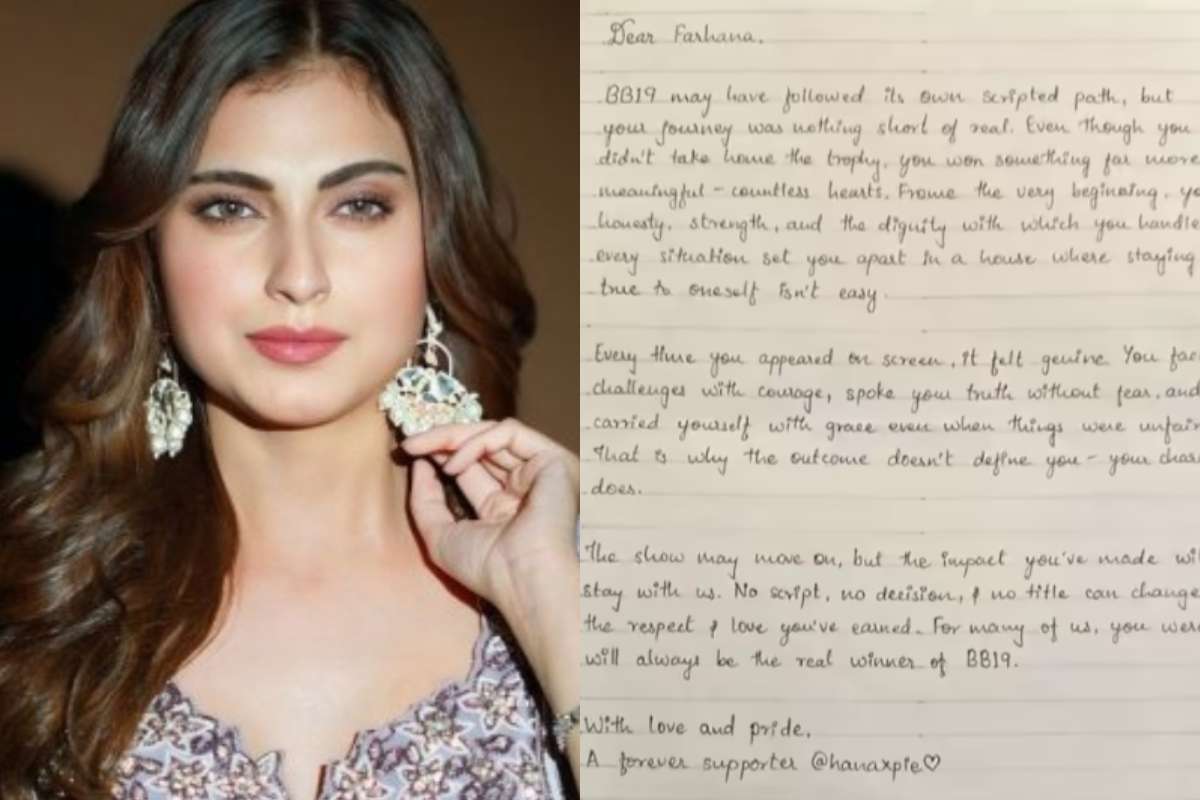 Dear Farhana,
BB19 may have followed its own scripted path, but
your journey was nothing short of real. Even though you
didn't take home the trophy, you won something far more
meaningful - countless hearts. Frome the very beginning, yo
honesty, strength, and the dignity with which you handle
every situation set you apart in a house where staying
true to oneself isn't easy.
Every time you appeared on screen, it felt genuine You fac
challenges with courage, spoke your truth without fear, and
carried yourself with grace even when things were unfair
That is why the outcome doesn't define you - your char
does.
The show may move on, but the impact you've made wi
stay with us. No script, no decision, & no title can change
the respect & love you've earned. For many of us, you were
will always be the real winner of BB19.
With love and pride,
A forever supporter @hanaxpie♡